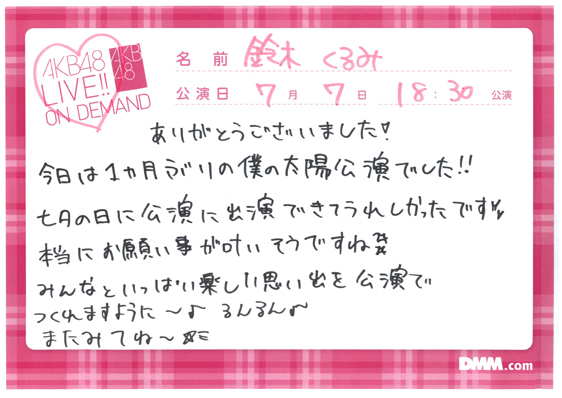 AKB48
LIVE!!
ON DEMAND
AKB
48
名前 鈴木 くるみ
公演日 7月 7日 18:30 公演
ありがとうございました!
今日は1ヵ月ぶりの僕の太陽公演でした!!
七夕の日に公演に出演できてうれしかったです!!
本当にお願い事が叶いそうですね
みんなといっぱい楽しい思い出を公演で
つくれますように〜♪ るんるん♪
またみてね〜
DMM.com